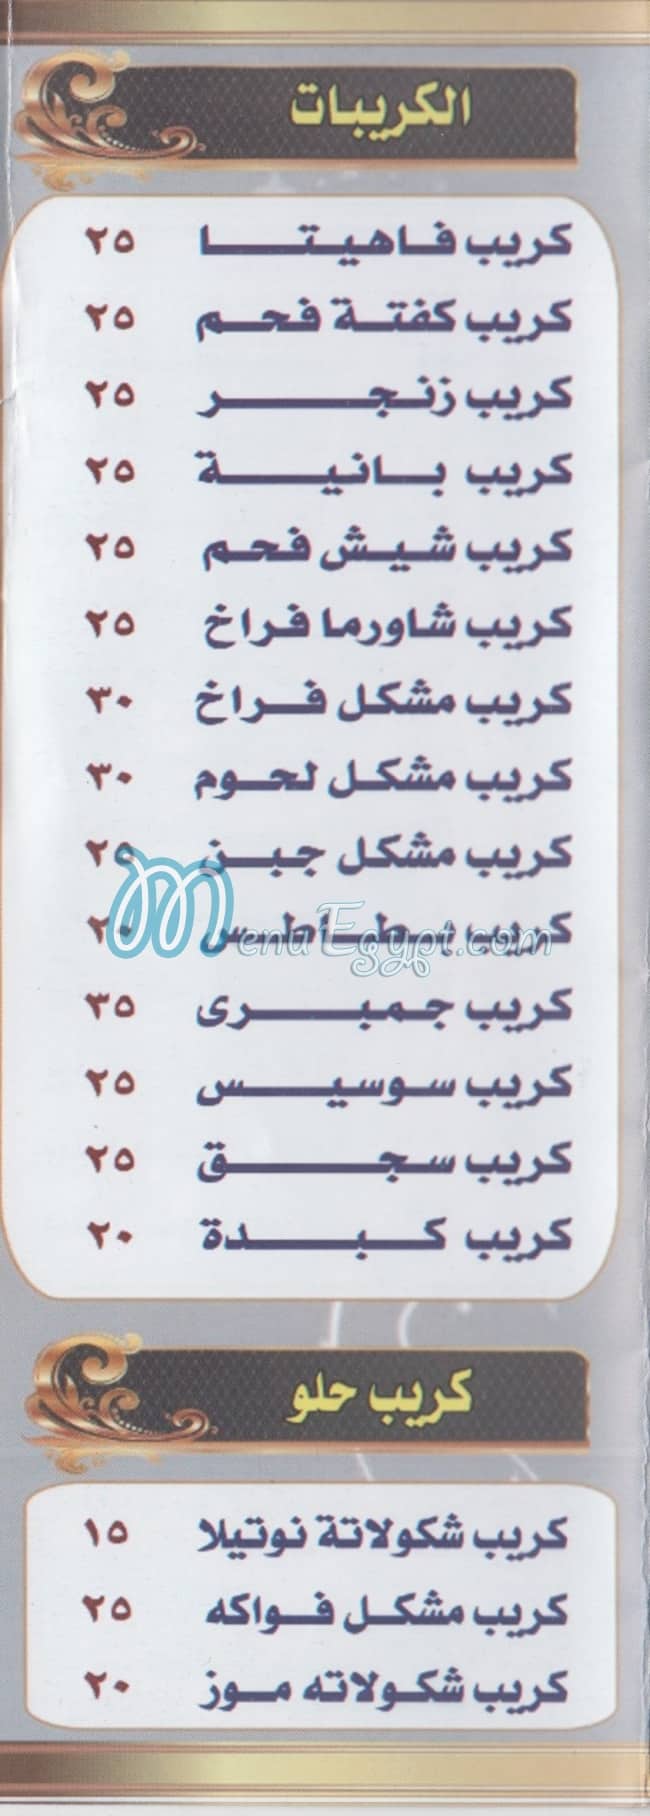 الكريبات
كريب فاهيتا ٢٥
كريب كفتة فحم ٢٥
كريب زنجر ٢٥
كريب بانية ٢٥
كريب شيش فحم ٢٥
كريب شاورما فراخ ٢٥
كريب مشكل فراخ ٣٠
كريب مشكل لحوم ٣٠
كريب مشكل جبن ٢٥
كريب بطاطس ٢٠
MenuEgypt.com
كريب جمبرى ٣٥
كريب سوسيس ٢٥
كريب سجق ٢٥
كريب كبدة ٢٠
كريب حلو
كريب شكولاتة نوتيلا ١٥
كريب مشكل فواكه ٢٥
كريب شكولاته موز ٢٠